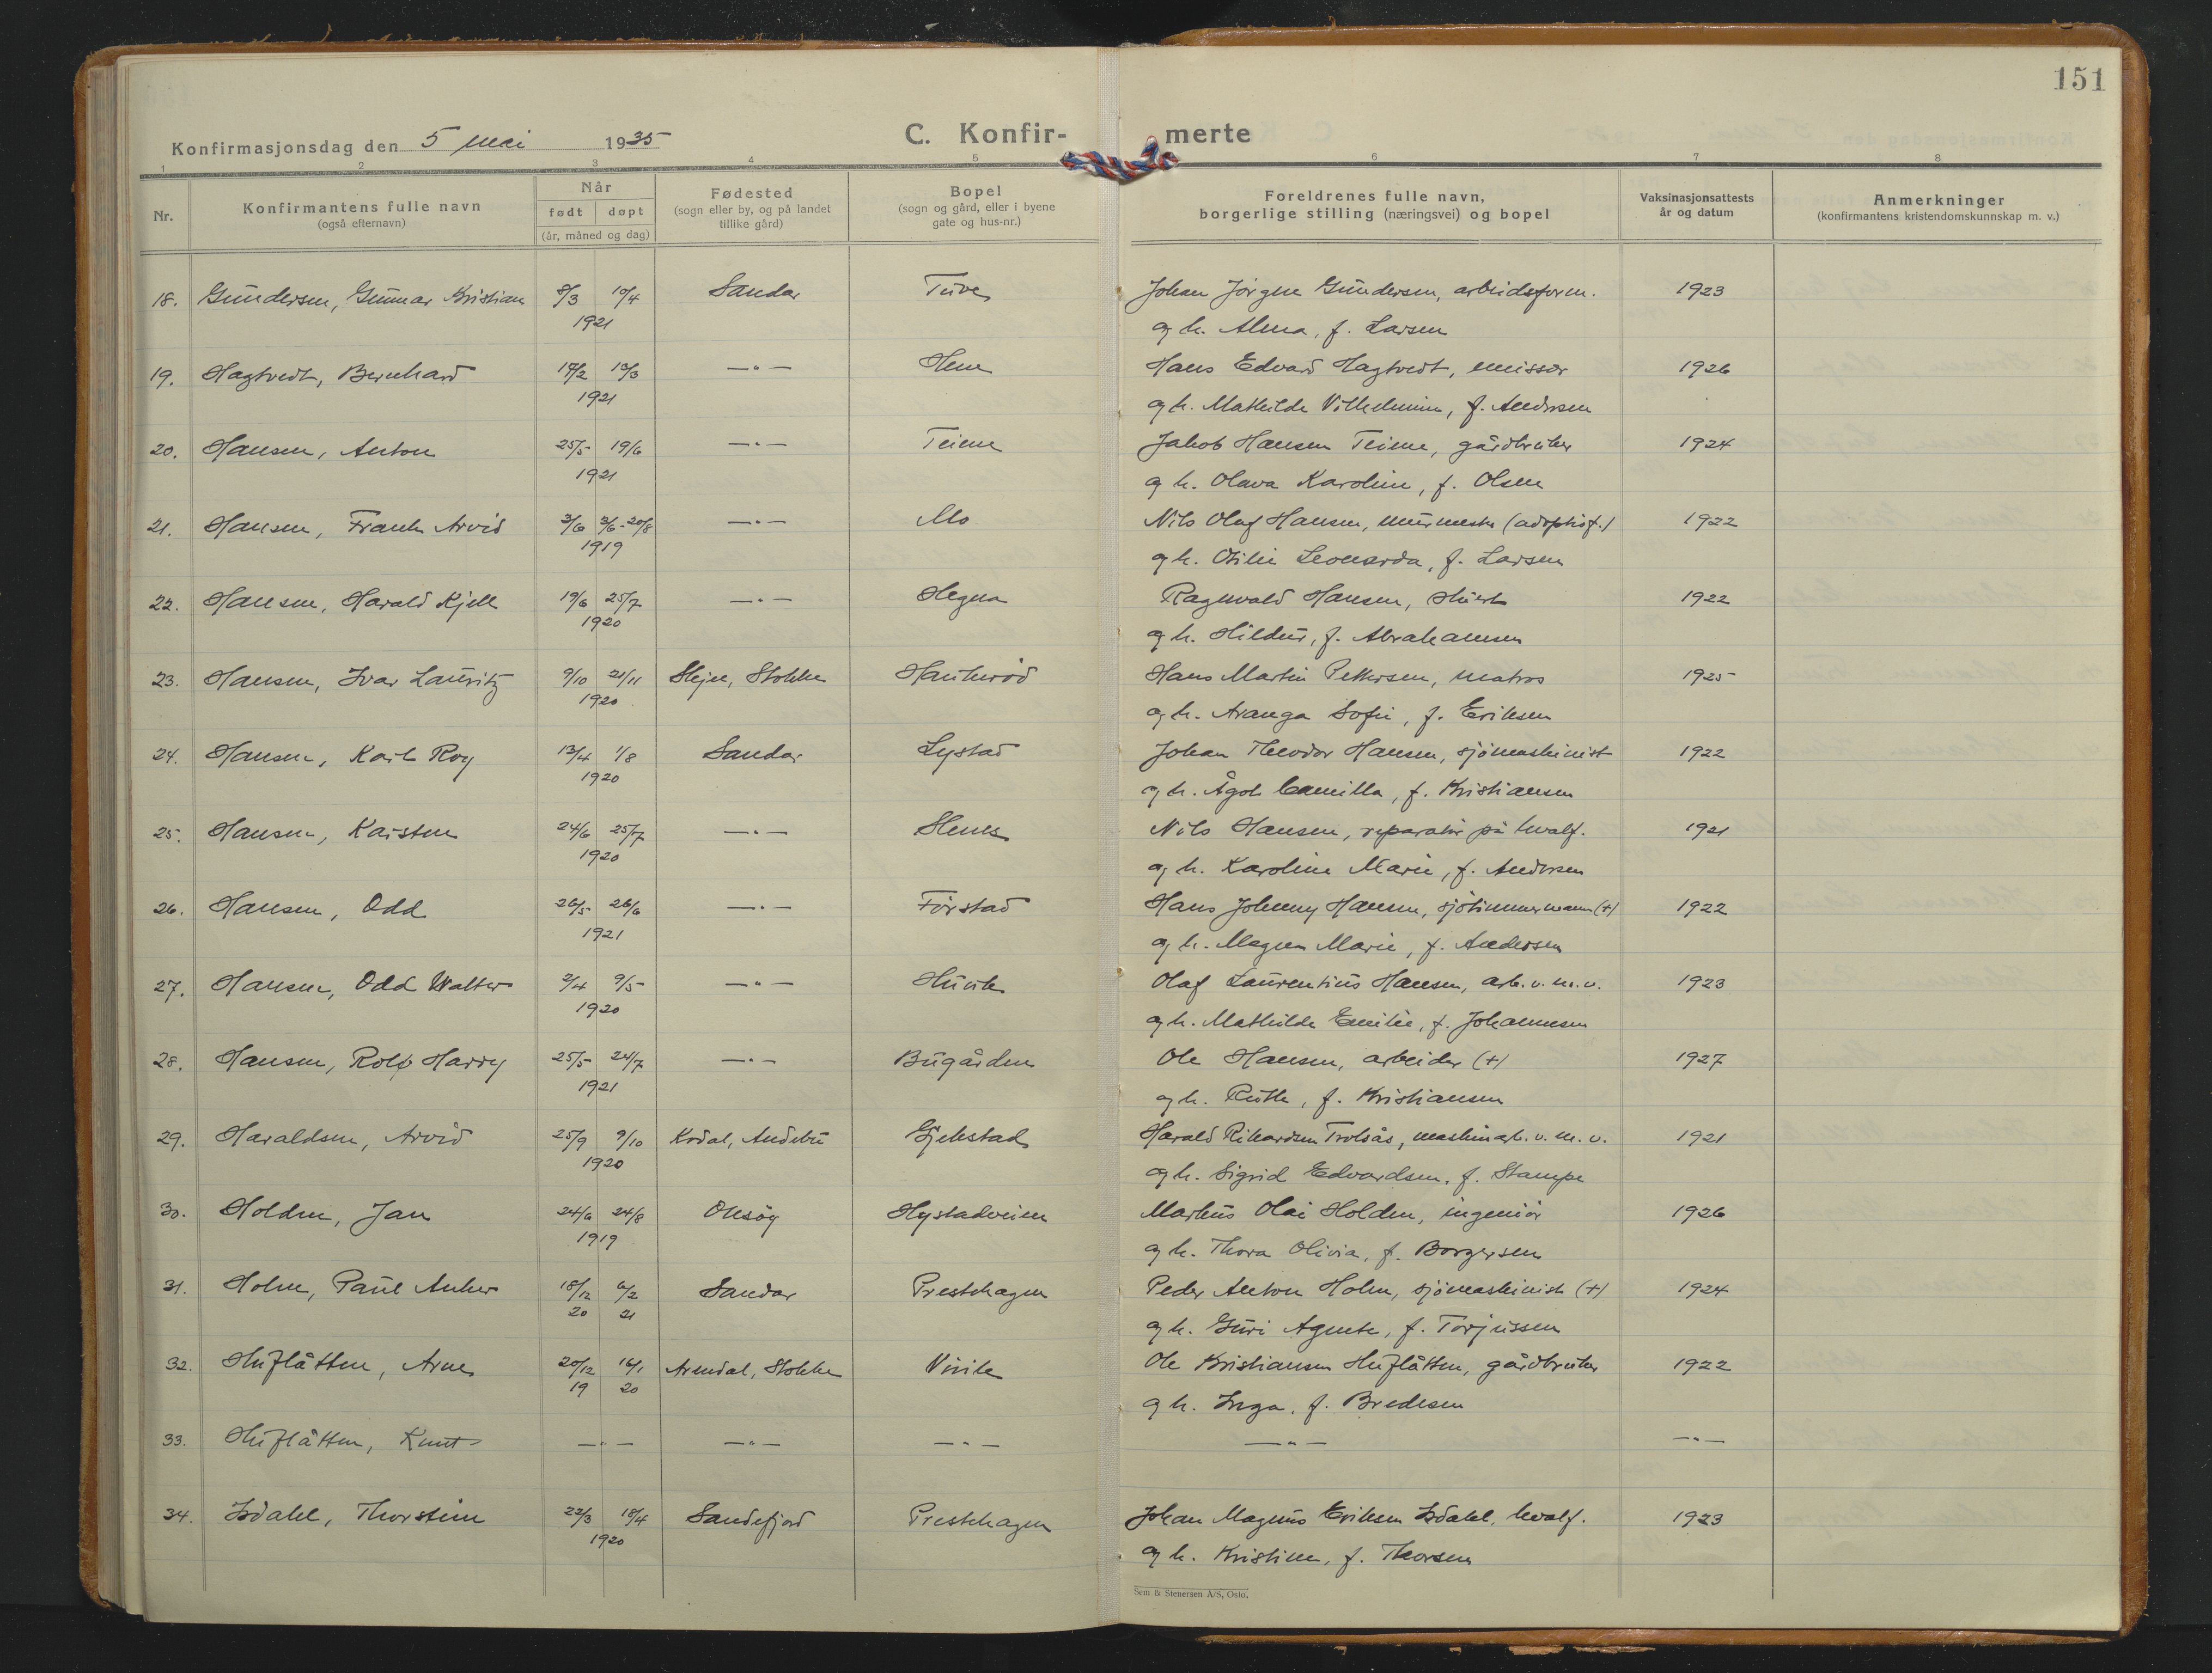 151
Konfirmasjonsdag den 5 mai 1935
C. Konfir-merte
1 2 3 4 5 6 7 8
Nr. Konfirmantens fulle navn (også efternavn) Når født døpt (år, måned og dag) Fødested (sogn eller by, og på landet tillike gård) Bopel (sogn og gård, eller i byene gate og hus-nr.) Foreldrenes fulle navn, borgerlige stilling (næringsvei) og bopel Vaksinasjonsattests år og datum Anmerkninger (konfirmantens kristendomskunnskap m. v.)
18. Gundersen, Gunnar Kristian 8/3 10/4 Sandar Tuve Johan Jørgen Gundersen, arbeidsform. 1923
1921 og h. Alma, f. Larsen
19. Hagtvedt, Bernhard 17/2 13/3 —"— Hem Hans Edvard Hagtvedt, emissær 1926
1921 og h. Mathilde Vilhelmine, f. Andersen
20. Hansen, Anton 25/5 19/6 —"— Teien Jakob Hansen Teien, gårdbruker 1924
1921 og h. Olava Karoline, f. Olsen
21. Hansen, Frank Arvid 3/6 3/6-20/8 —"— Mo Nils Olaf Hansen, murmester (adoptivf.) 1922
1919 og h. Otilie Leonarda, f. Larsen
22. Hansen, Harald Kjell 19/6 25/7 —"— Hegna Ragnvald Hansen, stuert 1922
1920 og h. Hildur, f. Abrahamsen
23. Hansen, Ivar Lauritz 9/10 21/11 Skjee, Stokke Haukerød Hans Martin Pettersen, matros 1925
1920 og h. Aranga Sofie, f. Eriksen
24. Hansen, Karl Roy 13/4 1/8 Sandar Lystad Johan Theodor Hansen, sjømaskinist 1922
1920 og h. Ågot Camilla, f. Kristiansen
25. Hansen, Karsten 24/6 25/7 —"— Nils Hansen, reparatør på hvalf. 1921
1920 og h. Karoline Marie, f. Andersen
26. Hansen, Odd 26/5 26/6 —"— Førstad Hans Johnny Hansen, sjøtimmermann (+) 1922
1921 og h. Magna Marie, f. Andersen
27. Hansen, Odd Walter 2/4 9/5 —"— Huvik Olaf Laurentius Hansen, arb. v. m. v. 1923
1920 og h. Mathilde Emilie, f. Johannesen
28. Hansen, Rolf Harry 25/5 24/7 —"— Bugården Ole Hansen, arbeider (+) 1927
1921 og h. Ruth, f. Kristiansen
29. Haraldsen, Arvid 25/9 9/10 Kodal, Andebu Gjekstad Harald Rikardsen Trolsås, maskinarb. v. m. v. 1921
1920 og h. Sigrid Edvardsen, f. Stampe
30. Holden, Jan 24/6 24/8 Onsøy Hystadveien Markus Olai Holden, ingeniør 1926
1919 og h. Thora Olivia, f. Borgersen
31. Holm, Paul Anker 18/12 6/2 Sandar Prestehagen Peder Anton Holm, sjømaskinist (+) 1924
20 21 og h. Guri Agnete, f. Torjussen
32. Huflåtten, Arne 20/12 16/1 Arendal, Stokke Virik Ole Kristiansen Huflåtten, gårdbruker 1922
19 20 og h. Inga, f. Bredesen
33. Huflåtten, Knut —"— —"— —"— —"— —"—
34. Isdahl, Thorstein 22/3 18/4 Sandefjord Prestehagen Johan Magnus Eriksen Isdahl, hvalf. 1923
1920 og h. Kristine, f. Thorsen
Sem & Stenersen A/S, Oslo.